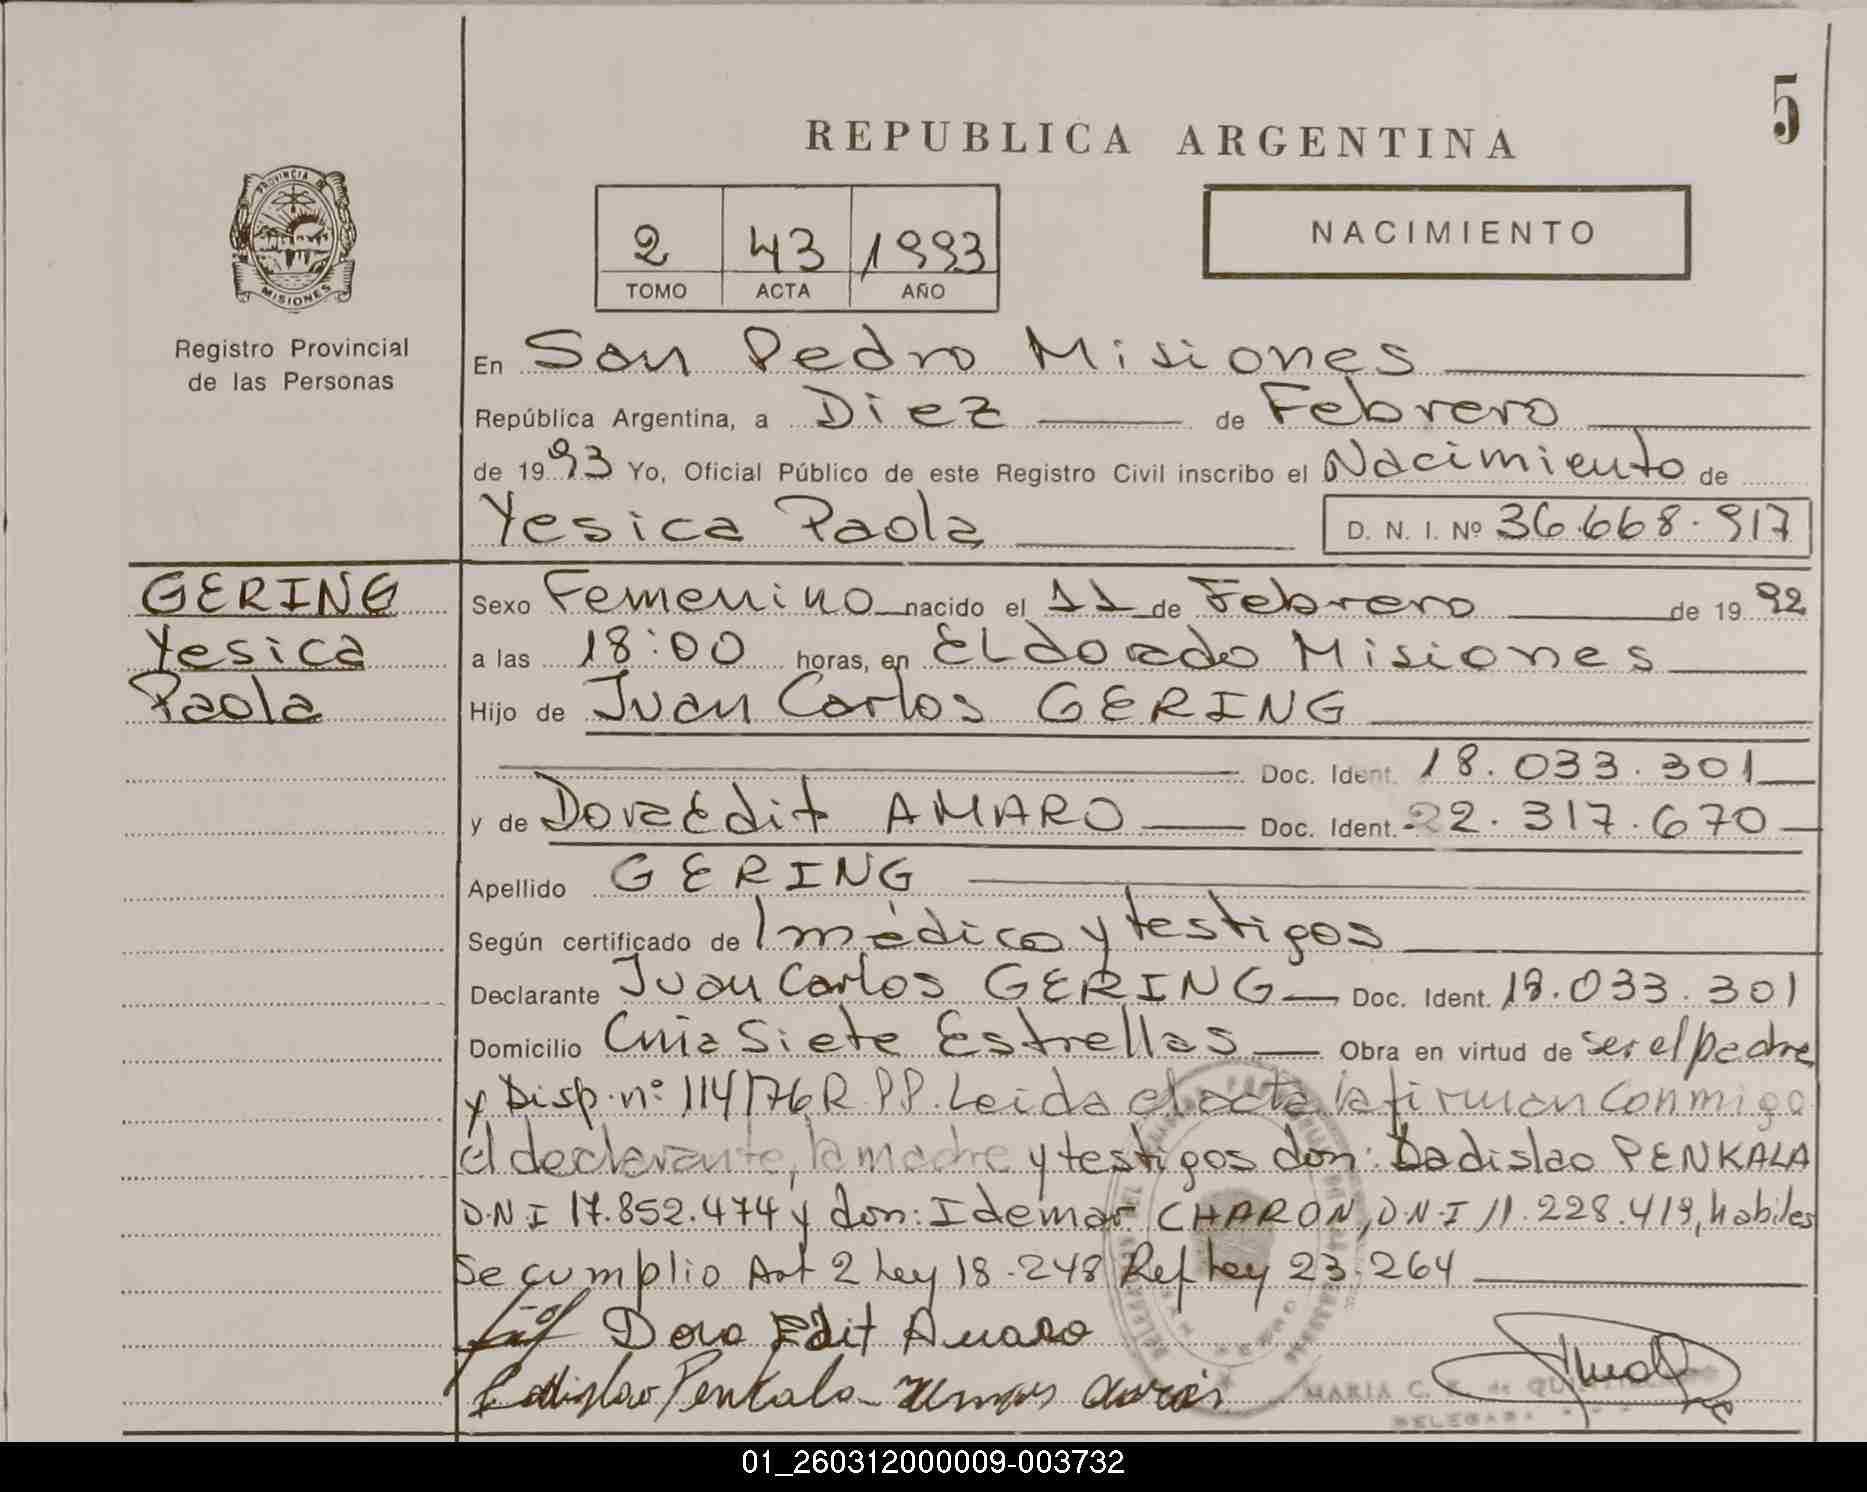 5
REPUBLICA ARGENTINA
PROVINCIA DE
MISIONES
Registro Provincial
de las Personas
2 43 1993
TOMO ACTA AÑO
NACIMIENTO
En San Pedro Misiones
República Argentina, a Diez de Febrero
de 1993 Yo, Oficial Público de este Registro Civil inscribo el Nacimiento de
Yesica Paola D. N. I. Nº 36.668.917
GERING
Yesica
Paola
Sexo Femenino nacido el 11 de Febrero de 1992
a las 18:00 horas, en ELdorado Misiones
Hijo de Juan Carlos GERING
Doc. Ident. 18.033.301
y de Dora Edit AMARO Doc. Ident. 22.317.670
Apellido GERING
Según certificado de médico y testigos
Declarante Juan Carlos GERING Doc. Ident. 18.033.301
Domicilio Cnia Siete Estrellas Obra en virtud de ser el padre
y Disp. nº 114/76 R.P.P. Leida el acta la firman conmigo
el declarante, la madre y testigos don: Ladislao PENKALA
D.N.I 17.852.474 y don: Idemar CHARON, D.N.I 11.228.419, habiles
Se cumplio Art 2 Ley 18.248 Ref Ley 23.264
Dora Edit Amaro
Ladislao Penkala
MARIA C.
DELEGADA
01_260312000009-003732